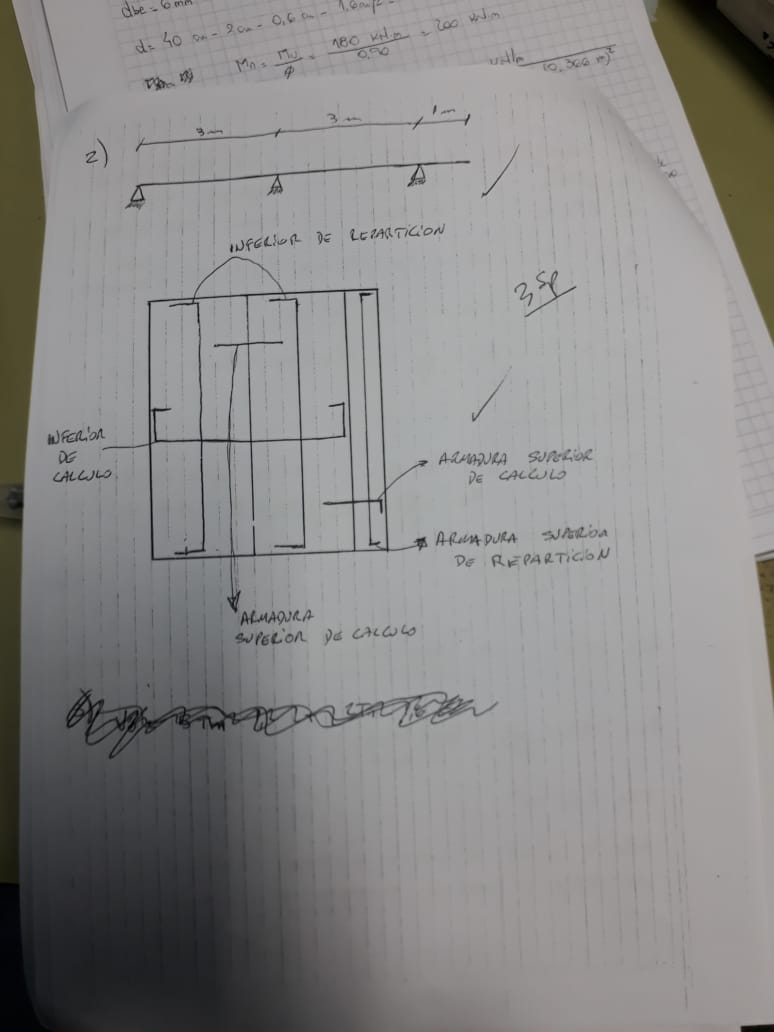 dbe = 6 mm
d = 40 cm - 2 cm - 0,6 cm - 1,6 cm/2
Mn = Mu/φ = 180 kN.m/0,90 = 200 kN.m
2)
3 m 3 m 1 m
INFERIOR DE REPARTICION
INFERIOR
DE
CALCULO
ARMADURA SUPERIOR
DE CALCULO
ARMADURA SUPERIOR
DE REPARTICION
ARMADURA
SUPERIOR DE CALCULO